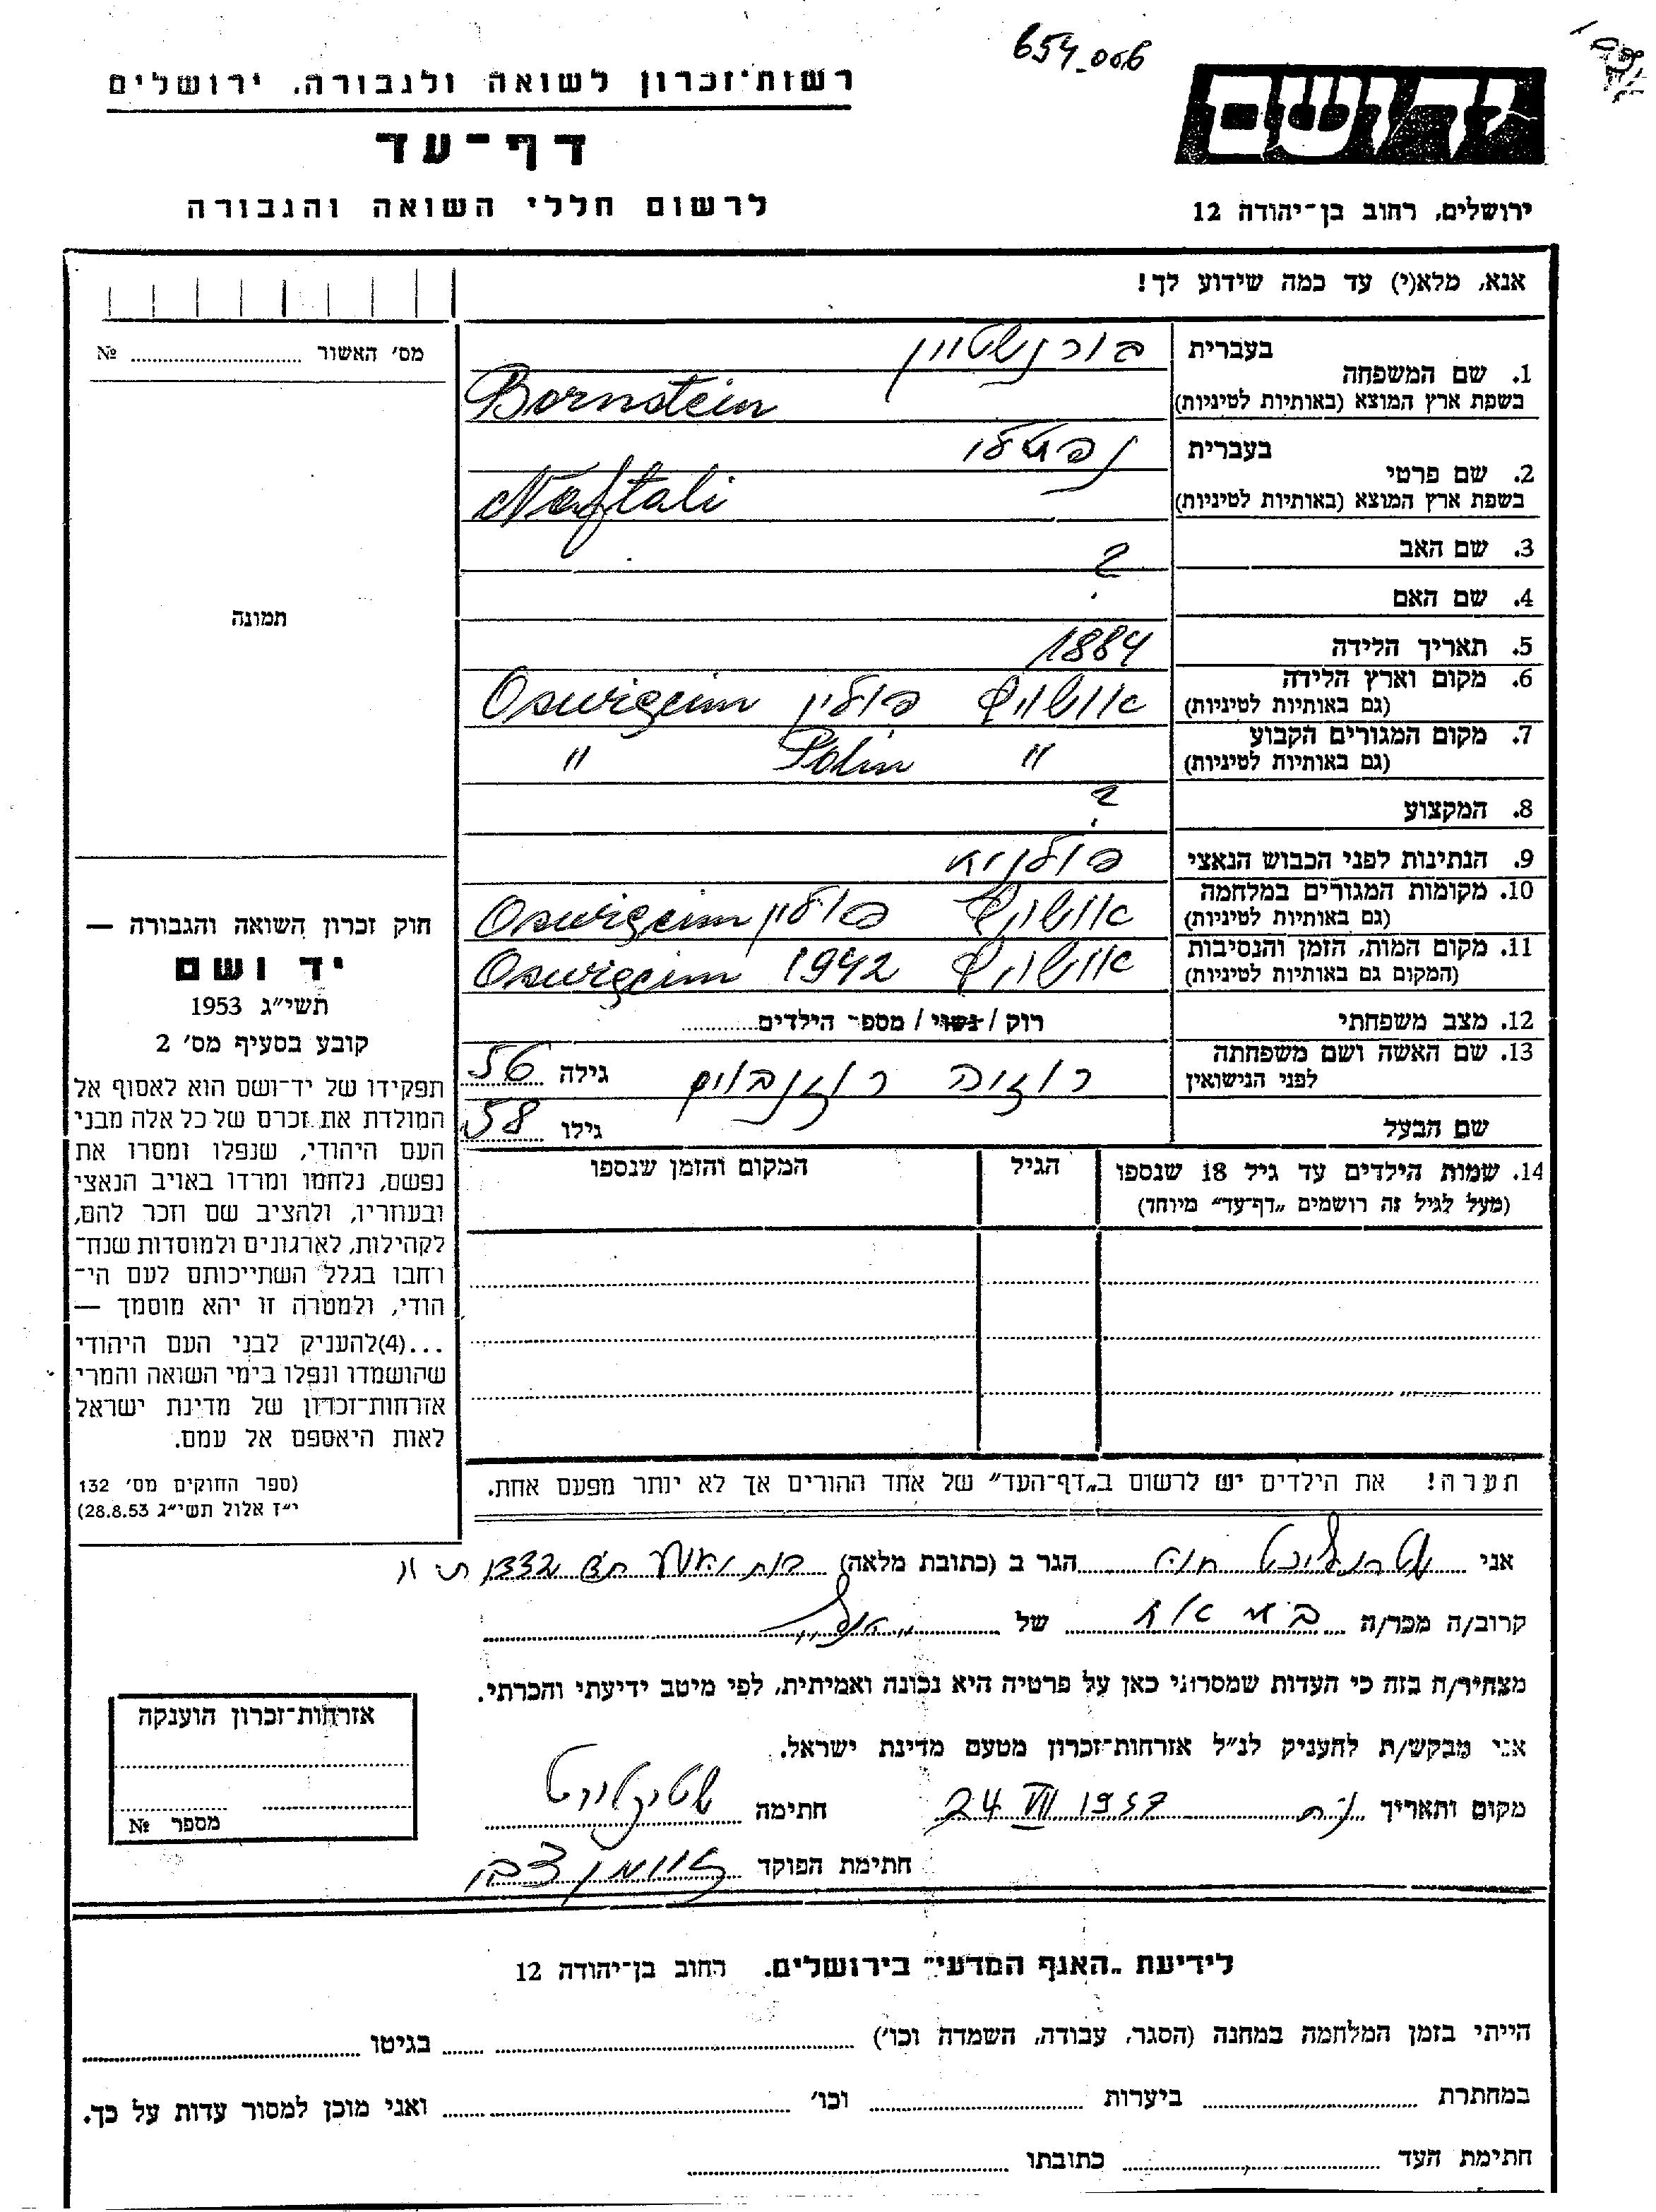 654-006
רשות־זכרון לשואה ולגבורה, ירושלים
דף־עד
לרשום חללי השואה והגבורה
יד ושם
ירושלים, רחוב בן־יהודה 12
אנא, מלא(י) עד כמה שידוע לך!
בעברית בורנשטיין
1. שם המשפחה
בשפת ארץ המוצא (באותיות לטיניות) Bornstein
בעברית נפטלי
2. שם פרטי
בשפת ארץ המוצא (באותיות לטיניות) Naftali
3. שם האב ?
4. שם האם
5. תאריך הלידה 1884
6. מקום וארץ הלידה
(גם באותיות לטיניות) אושויץ פולין Oswięcim
7. מקום המגורים הקבוע
(גם באותיות לטיניות) " Polin "
8. המקצוע ?
9. הנתינות לפני הכבוש הנאצי פולניא
10. מקומות המגורים במלחמה
(גם באותיות לטיניות) אושויץ פולין Oswięcim
11. מקום המות, הזמן והנסיבות
(המקום גם באותיות לטיניות) אושויץ 1942 Oswięcim
12. מצב משפחתי רווק / נשוי / מספר הילדים
13. שם האשה ושם משפחתה
לפני הנישואין רוזיה רוזנבוים גילה 56
שם הבעל גילו 58
14. שמות הילדים עד גיל 18 שנספו הגיל המקום והזמן שנספו
(מעל לגיל זה רושמים "דף־עד" מיוחד)
הערה! את הילדים יש לרשום ב"דף־העד" של אחד ההורים אך לא יותר מפעם אחת.
מס' האשור №
תמונה
חוק זכרון השואה והגבורה —
יד ושם
תשי"ג 1953
קובע בסעיף מס' 2
תפקידו של יד־ושם הוא לאסוף אל
המולדת את זכרם של כל אלה מבני
העם היהודי, שנפלו ומסרו את
נפשם, נלחמו ומרדו באויב הנאצי
ובעוזריו, ולהציב שם וזכר להם,
לקהילות, לארגונים ולמוסדות שנח־
רבו בגלל השתייכותם לעם הי־
הודי, ולמטרה זו יהא מוסמך —
...(4)להעניק לבני העם היהודי
שהושמדו ונפלו בימי השואה והמרי
אזרחות־זכרון של מדינת ישראל
לאות היאספם אל עמם.
(ספר החוקים מס' 132
י"ז אלול תשי"ג 28.8.53)
אני הגר ב (כתובת מלאה)
קרוב/ה מכר/ה של
מצהיר/ה בזה כי העדות שמסרתי כאן על פרטיה היא נכונה ואמיתית, לפי מיטב ידיעתי והכרתי.
אני מבקש/ת להעניק לנ"ל אזרחות־זכרון מטעם מדינת ישראל.
מקום ותאריך 24 VII 1957 חתימה
חתימת הפוקד
אזרחות־זכרון הוענקה
מספר №
לידיעת "האגף המדעי" בירושלים. רחוב בן־יהודה 12
הייתי בזמן המלחמה במחנה (הסגר, עבודה, השמדה וכו') בגיטו
במחתרת ביערות וכו' ואני מוכן למסור עדות על כך.
חתימת העד כתובתו